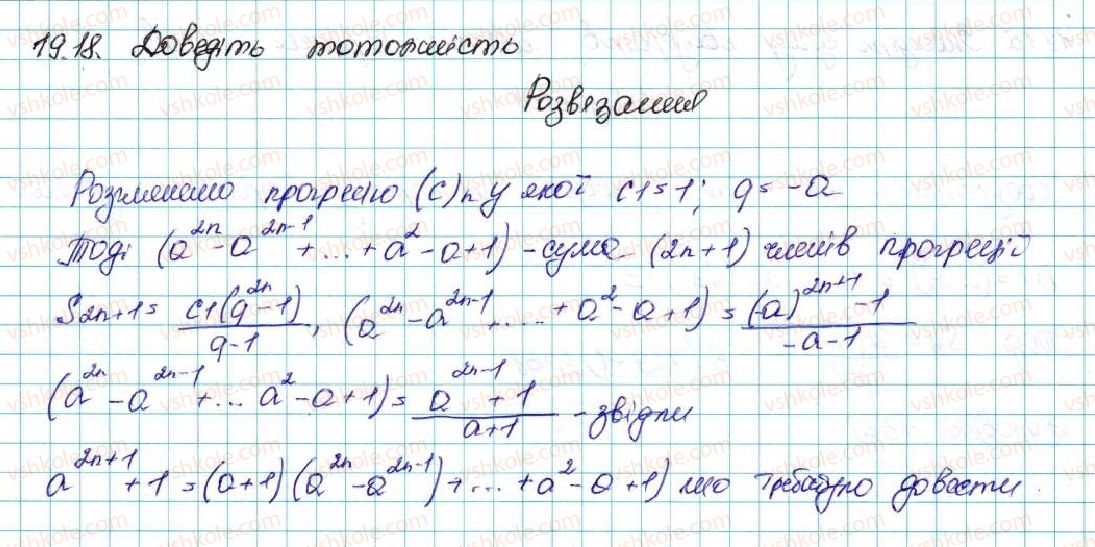 19.18. Доведіть тотожність
Розвязання
Розглянемо прогресію (c)n у якої c1=1; q=-a
Тоді (a^{2n}-a^{2n-1}+...+a^2-a+1) - сума (2n+1) членів прогресії
S2n+1= \frac{c1(q^{2n}-1)}{q-1}, (a^{2n}-a^{2n-1}+....+a^2-a+1)=\frac{(-a)^{2n+1}-1}{-a-1}
(a^{2n}-a^{2n-1}+...a^2-a+1)=\frac{a^{2n-1}+1}{a+1} - звідки
a^{2n+1}+1=(a+1)(a^{2n}-a^{2n-1})+...+a^2-a+1) що требадуло довести.